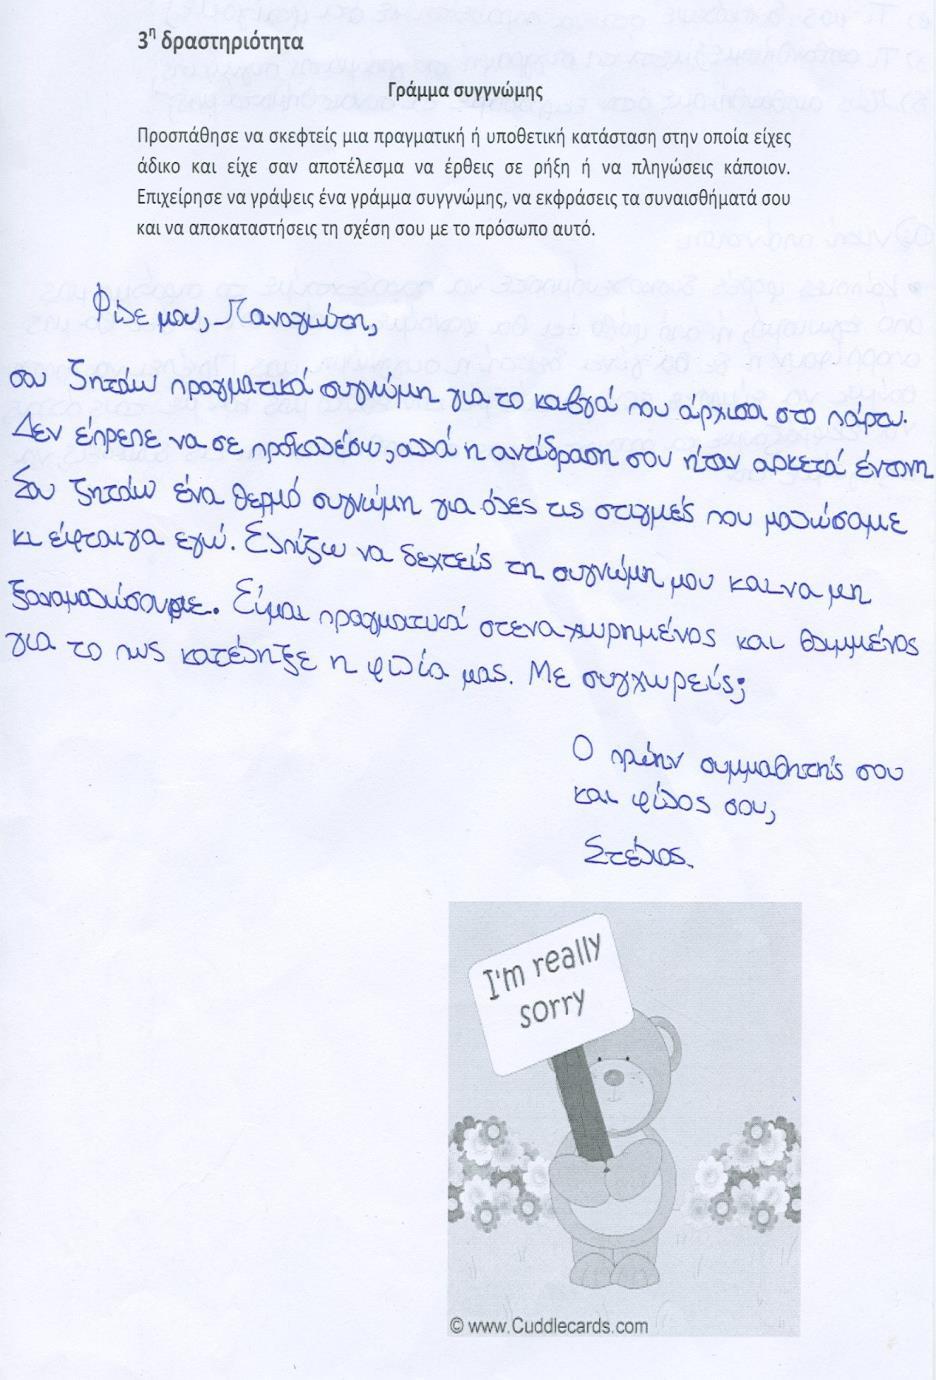 3η δραστηριότητα
Γράμμα συγγνώμης
Προσπάθησε να σκεφτείς μια πραγματική ή υποθετική κατάσταση στην οποία είχες
άδικο και είχε σαν αποτέλεσμα να έρθεις σε ρήξη ή να πληγώσεις κάποιον.
Επιχείρησε να γράψεις ένα γράμμα συγγνώμης, να εκφράσεις τα συναισθήματά σου
και να αποκαταστήσεις τη σχέση σου με το πρόσωπο αυτό.
Φίλε μου, Παναγιώτη,
σου ζητάω πραγματικά συγνώμη για το καβγά που άρχισα στο πάρτυ.
Δεν έπρεπε να σε προκαλέσω, αλλά η αντίδραση σου ήταν αρκετά έντονη
Σου ζητάω ένα θερμό συγνώμη για όλες τις στιγμές που μαλώσαμε
κι έφταιγα εγώ. Ελπίζω να δεχτείς τη συγνώμη μου και να μη
ξαναμαλώσουμε. Είμαι πραγματικά στεναχωρημένος και θλιμμένος
για το πως κατέληξε η φιλία μας. Με συγχωρείς;
Ο πρώην συμμαθητής σου
και φίλος σου,
Στέλιος.
I'm really
sorry
© www.Cuddlecards.com